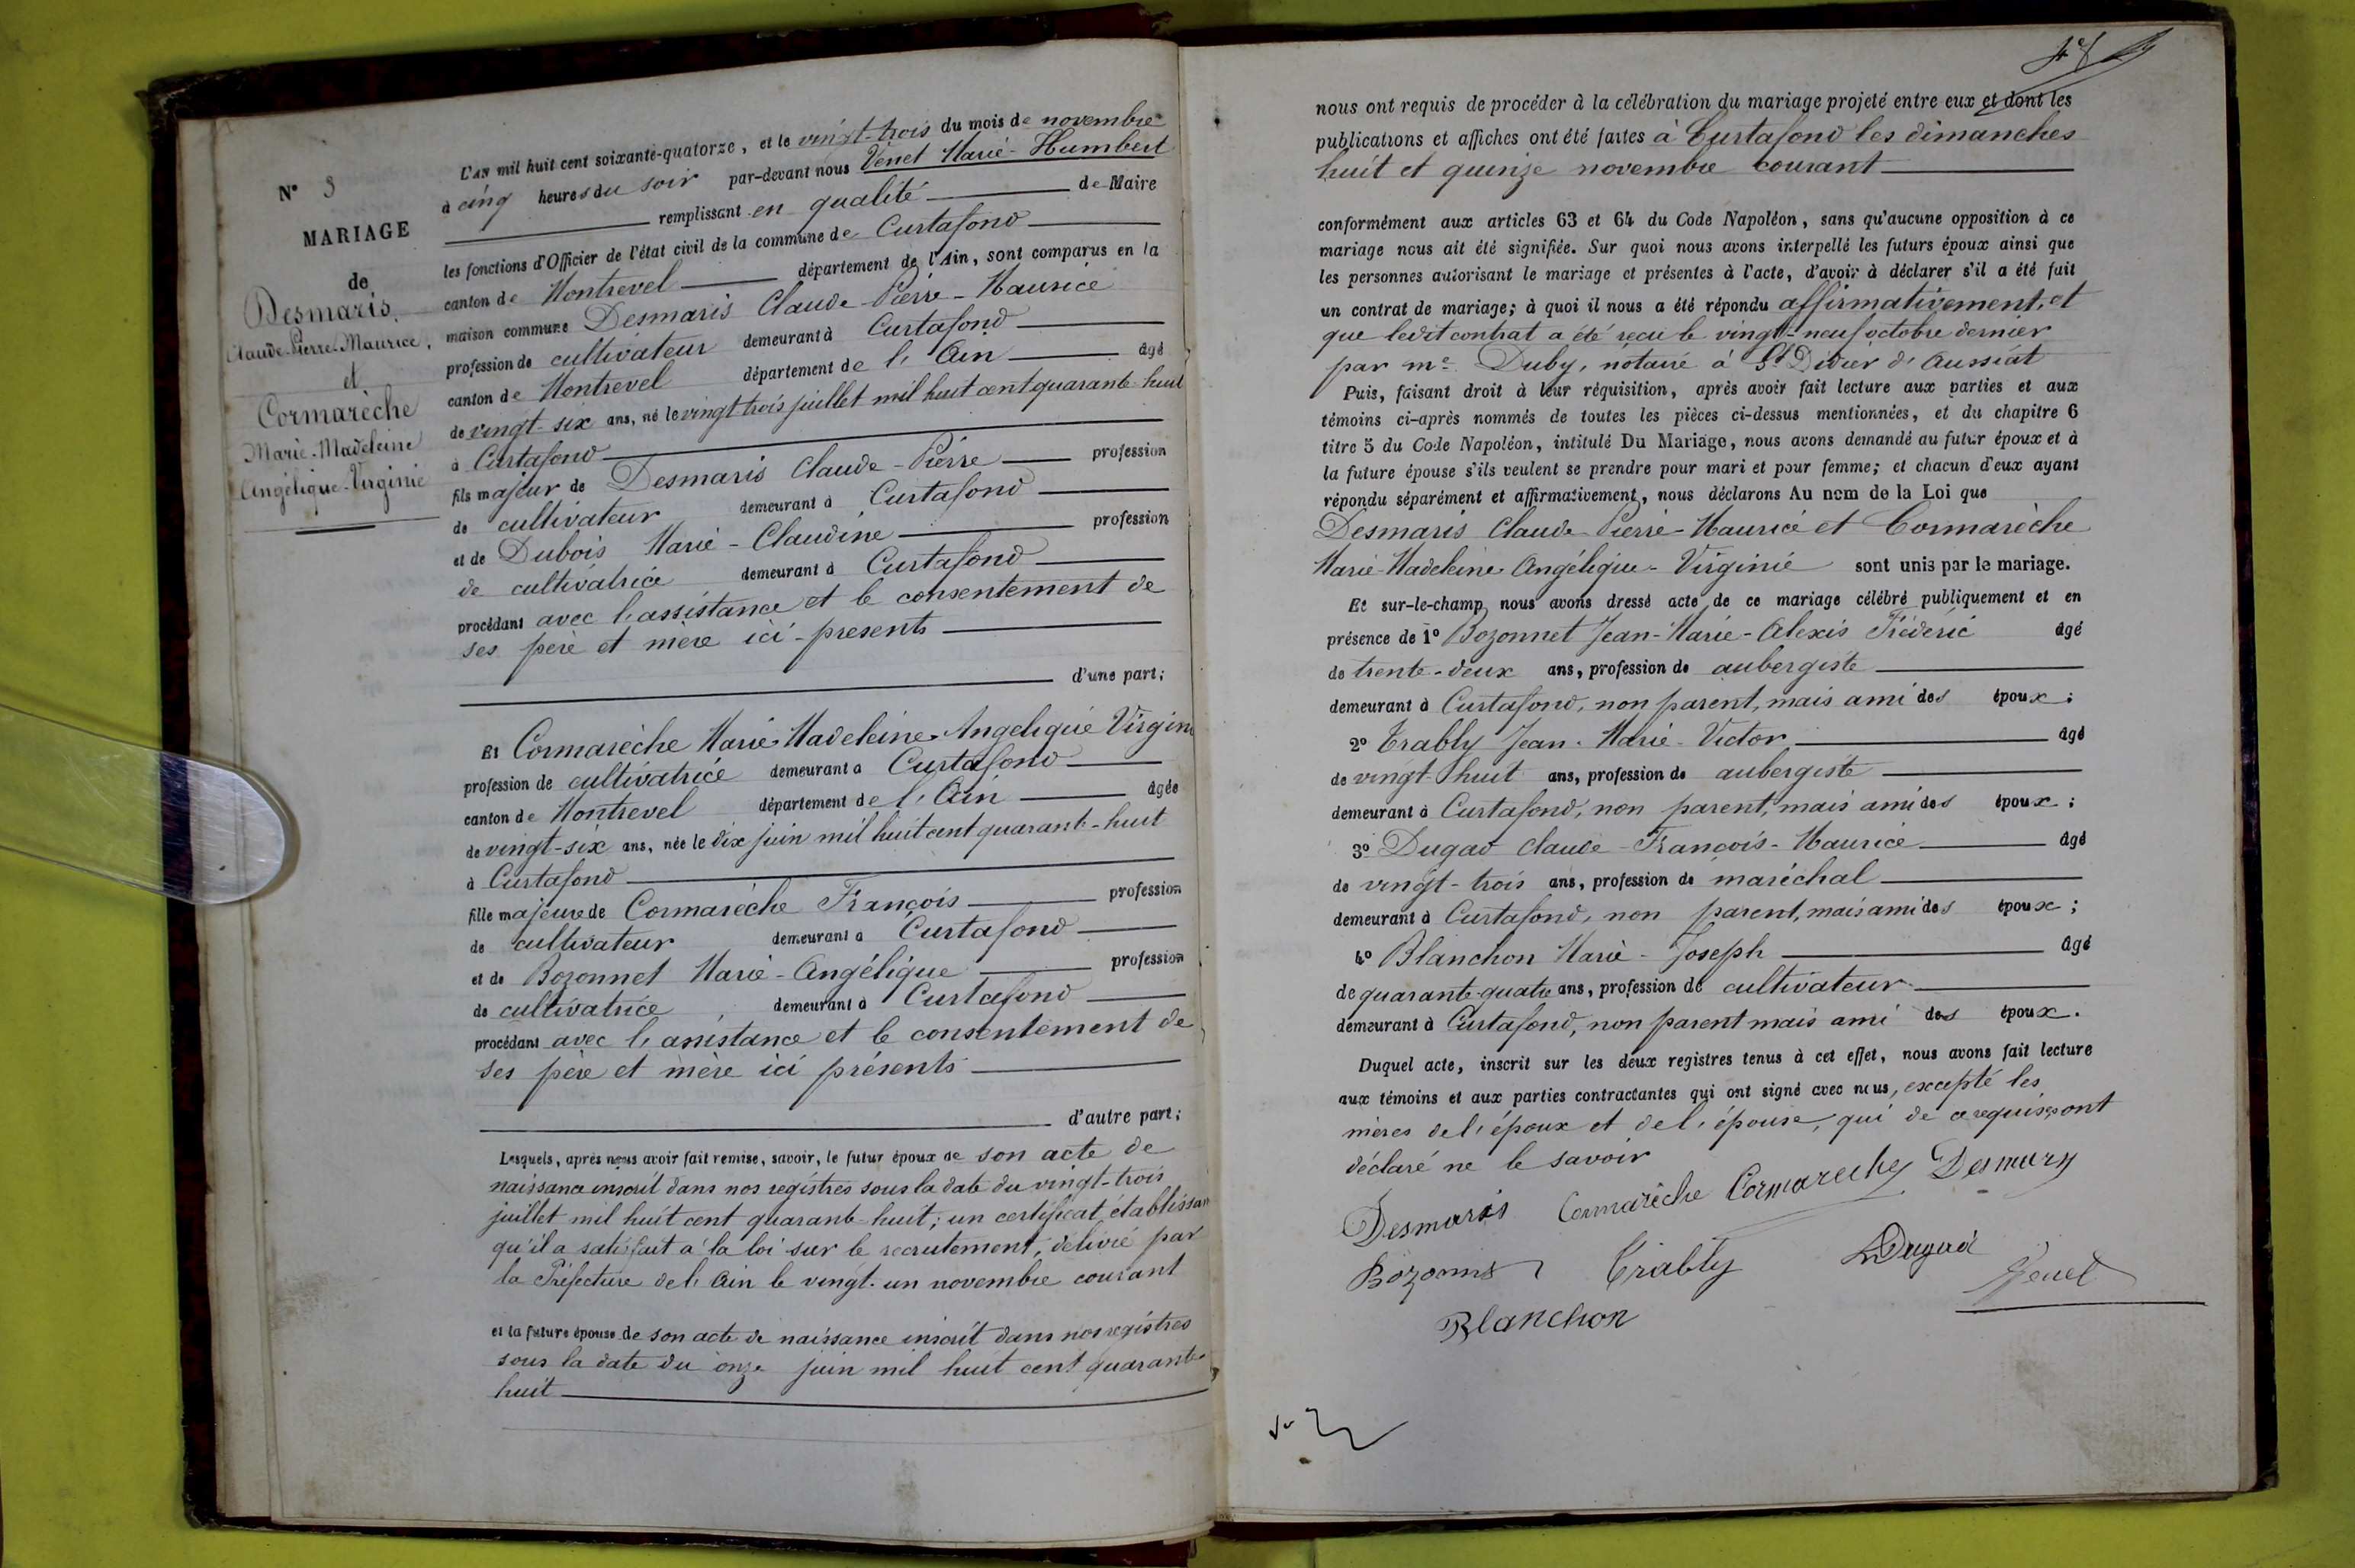 N° 3
MARIAGE
de
Desmaris
Claude-Pierre-Maurice,
et
Cormarèche
Marie-Madeleine
Angélique-Virginie
L'AN mil huit cent soixante-quatorze, et le vingt-trois du mois de novembre
à cinq heures du soir par-devant nous Venet Marie-Humbert
remplissant en qualité de Maire
les fonctions d'Officier de l'état civil de la commune de Curtafond
canton de Montrevel département de l'Ain, sont comparus en la
maison commune Desmaris Claude-Pierre-Maurice
profession de cultivateur demeurant à Curtafond
canton de Montrevel département de l'Ain âgé
de vingt-six ans, né le vingt trois juillet mil huit cent quarante-huit
à Curtafond
fils majeur de Desmaris Claude-Pierre profession
de cultivateur demeurant à Curtafond
et de Dubois Marie-Claudine profession
de cultivatrice demeurant à Curtafond
procédant avec l'assistance et le consentement de
ses père et mère ici-présents
d'une part;
Et Cormarèche Marie-Madeleine-Angélique Virgin
profession de cultivatrice demeurant à Curtafond
canton de Montrevel département de l'Ain âgée
de vingt-six ans, née le dix juin mil huit cent quarante-huit
à Curtafond
fille majeure de Cormarèche François profession
de cultivateur demeurant à Curtafond
et de Bozonnet Marie-Angélique profession
de cultivatrice demeurant à Curtafond
procédant avec l'assistance et le consentement de
ses père et mère ici présents
d'autre part;
Lesquels, après nous avoir fait remise, savoir, le futur époux de son acte de
naissance inscrit dans nos registres sous la date du vingt-trois
juillet mil huit cent quarante-huit; un certificat établissan
qu'il a satisfait à la loi sur le recrutement, délivré par
la Préfecture de l'Ain le vingt-un novembre courant
et la future épouse de son acte de naissance inscrit dans nos registres
sous la date du onze juin mil huit cent quarante
huit
nous ont requis de procéder à la célébration du mariage projeté entre eux et dont les
publications et affiches ont été faites à Curtafond les dimanches
huit et quinze novembre courant
conformément aux articles 63 et 64 du Code Napoléon, sans qu'aucune opposition à ce
mariage nous ait été signifiée. Sur quoi nous avons interpellé les futurs époux ainsi que
les personnes autorisant le mariage et présentes à l'acte, d'avoir à déclarer s'il a été fait
un contrat de mariage; à quoi il nous a été répondu affirmativement, et
que ledit contrat a été reçu le vingt-neuf octobre dernier
par me Duby, notaire à St Didier d'Aussiat
Puis, faisant droit à leur réquisition, après avoir fait lecture aux parties et aux
témoins ci-après nommés de toutes les pièces ci-dessus mentionnées, et du chapitre 6
titre 5 du Code Napoléon, intitulé Du Mariage, nous avons demandé au futur époux et à
la future épouse s'ils veulent se prendre pour mari et pour femme; et chacun d'eux ayant
répondu séparément et affirmativement, nous déclarons Au nom de la Loi que
Desmaris Claude-Pierre-Maurice et Cormarèche
Marie-Madeleine-Angélique-Virginie sont unis par le mariage.
Et sur-le-champ nous avons dressé acte de ce mariage célébré publiquement et en
présence de 1° Bozonnet Jean-Marie-Alexis Fréderic âgé
de trente-deux ans, profession de aubergiste
demeurant à Curtafond, non parent, mais ami des époux;
2° Trably Jean-Marie-Victor âgé
de vingt-huit ans, profession de aubergiste
demeurant à Curtafond, non parent, mais ami des époux;
3° Dugad Claude-François-Maurice âgé
de vingt-trois ans, profession de maréchal
demeurant à Curtafond, non parent, mais ami des époux;
4° Blanchon Marie-Joseph âgé
de quarante-quatre ans, profession de cultivateur
demeurant à Curtafond, non parent mais ami des époux.
Duquel acte, inscrit sur les deux registres tenus à cet effet, nous avons fait lecture
aux témoins et aux parties contractantes qui ont signé avec nous, excepté les
mères de l'époux et de l'épouse, qui de ce requises ont
déclaré ne le savoir
Desmaris Cormarèche Cormareche Desmarys
Bozonnet Trably Dugad Venet
Blanchon